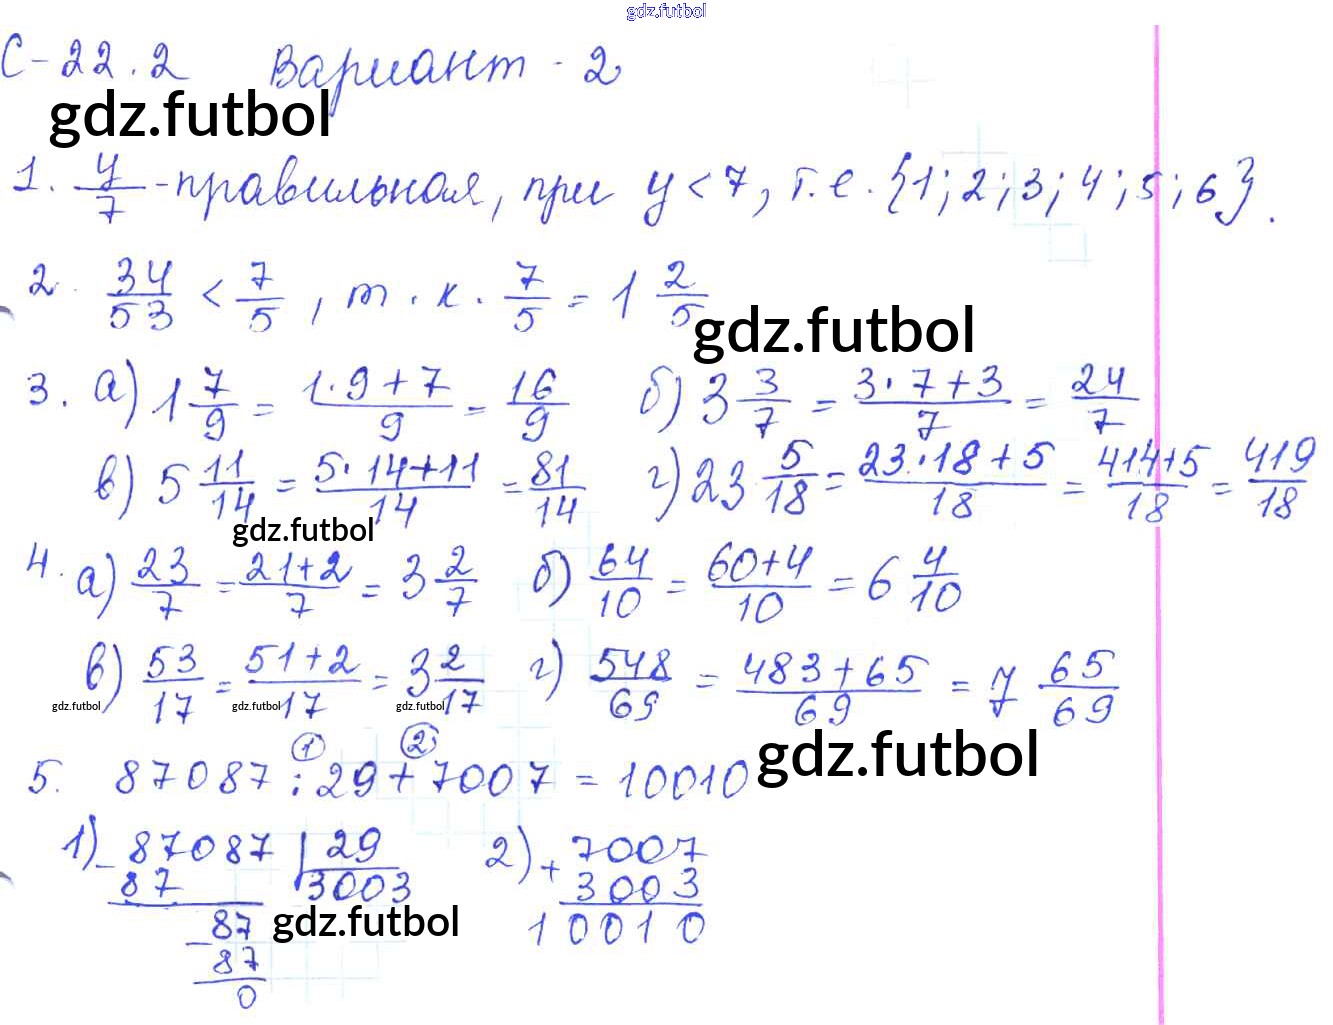 gdz.futbol
С-22.2 Вариант-2
gdz.futbol
1. y/7 - правильная, при y < 7, т.е. {1; 2; 3; 4; 5; 6}.
2. 34/53 < 7/5, т.к. 7/5 = 1 2/5
gdz.futbol
3. а) 1 7/9 = (1·9+7)/9 = 16/9 б) 3 3/7 = (3·7+3)/7 = 24/7
в) 5 11/14 = (5·14+11)/14 = 81/14 г) 23 5/18 = (23·18+5)/18 = (414+5)/18 = 419/18
gdz.futbol
4. а) 23/7 = (21+2)/7 = 3 2/7 б) 64/10 = (60+4)/10 = 6 4/10
в) 53/17 = (51+2)/17 = 3 2/17 г) 548/69 = (483+65)/69 = 7 65/69
gdz.futbol gdz.futbol gdz.futbol
① ②
5. 87087 : 29 + 7007 = 10010
gdz.futbol
1) - 87087 | 29 2) + 7007
87 3003 3003
87 gdz.futbol 10010
- 87
0